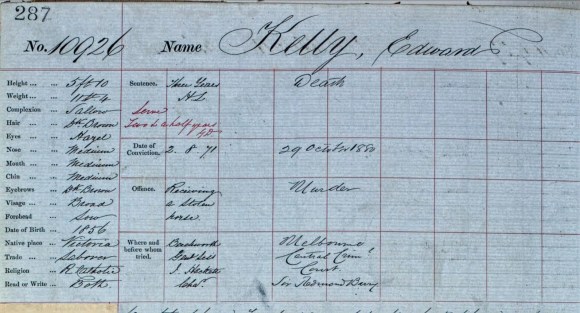 287
No. 10926 Name Kelly, Edward
Height 5 ft 10
Weight 11 st 4
Complexion Sallow
Hair Dk Brown
Eyes Hazel
Nose Medium
Mouth Medium
Chin Medium
Eyebrows Dk Brown
Visage Broad
Forehead Low
Date of Birth 1856
Native place Victoria
Trade Laborer
Religion R. Catholic
Read or Write Both
Sentence. Three Years Death
H L
Two & a half years
Date of Conviction. 2. 8. 71 29 October 1880
Offence. Receiving Murder
a Stolen
horse.
Where and before whom tried. Beechworth Melbourne,
Genl Sess Central Crim
Court
Sir Redmond Barry